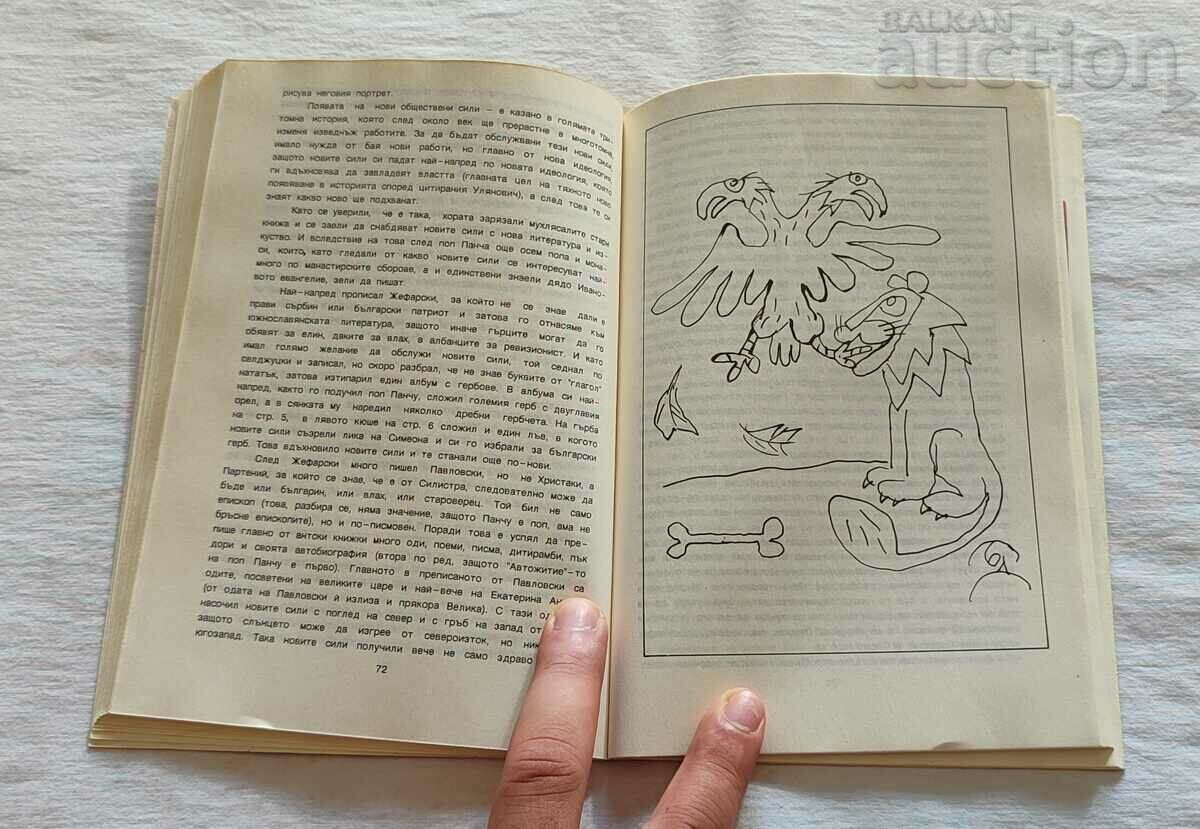 BALKAN
auction
рисува неговия портрет.
Появата на нови обществени сили – е казано в голямата три-
томна история, която след около век ще прерастне в многотомна,
изменя изведнъж работите. За да бъдат обслужвани тези нови сили,
имало нужда от бая нови работи, но главно от нова идеология,
защото новите сили си падат най-напред по новата идеология, която
ги вдъхновява да завладеят властта (главната цел на тяхното ново
появяване в историята според цитирания Улянович), а след това те си
знаят какво ново ще подхванат.
Като се уверили, че е така, хората зарязали мухлясалите стари
книжа и се заели да снабдяват новите сили с нова литература и из-
куство. И вследствие на това след поп Панча още осем попа и мона-
си, които, като гледали от какво новите сили се интересуват най-
много по манастирските сборове, а и единствени знаели дядо Ивано-
вото евангелие, зели да пишат.
Най-напред прописал Жефарски, за който не се знае дали е
прави сърбин или български патриот и затова го отнасяме към
южнославянската литература, защото иначе гърците могат да го
обявят за елин, даките за влах, а албанците за ревизионист. И като
имал голямо желание да обслужи новите сили, той седнал по
селджуцки и записал, но скоро разбрал, че не знае буквите от "глагол"
нататък, затова изтипарил един албум с гербове. В албума си най-
напред, както го подучил поп Панчу, сложил големия герб с двуглавия
орел, а в сянката му наредил няколко дребни гербчета. На гърба
на стр. 5, в лявото кюше на стр. 6 сложил и един лъв, в когото
новите сили съзрели лика на Симеона и си го избрали за български
герб. Това вдъхновило новите сили и те станали още по-нови.
След Жефарски много пишел Павловски, но не Христаки, а
Партений, за който се знае, че е от Силистра, следователно може да
бъде или българин, или влах, или староверец. Той бил не само
епископ (това, разбира се, няма значение, защото Панчу е поп, ама не
бръсне епископите), но и по-писмовен. Поради това е успял да пре-
пише главно от антски книжки много оди, поеми, писма, дитирамби, пък
дори и своята автобиография (втора по ред, защото "Автожитие"-то
на поп Панчу е първо). Главното в преписаното от Павловски са
одите, посветени на великите царе и най-вече на Екатерина
(от одата на Павловски ѝ излиза и прякора Велика). С тази
насочил новите сили с поглед на север и с гръб на запад от
защото слънцето може да изгрее от североизток, но
югозапад. Така новите сили получили вече не само здраво
72